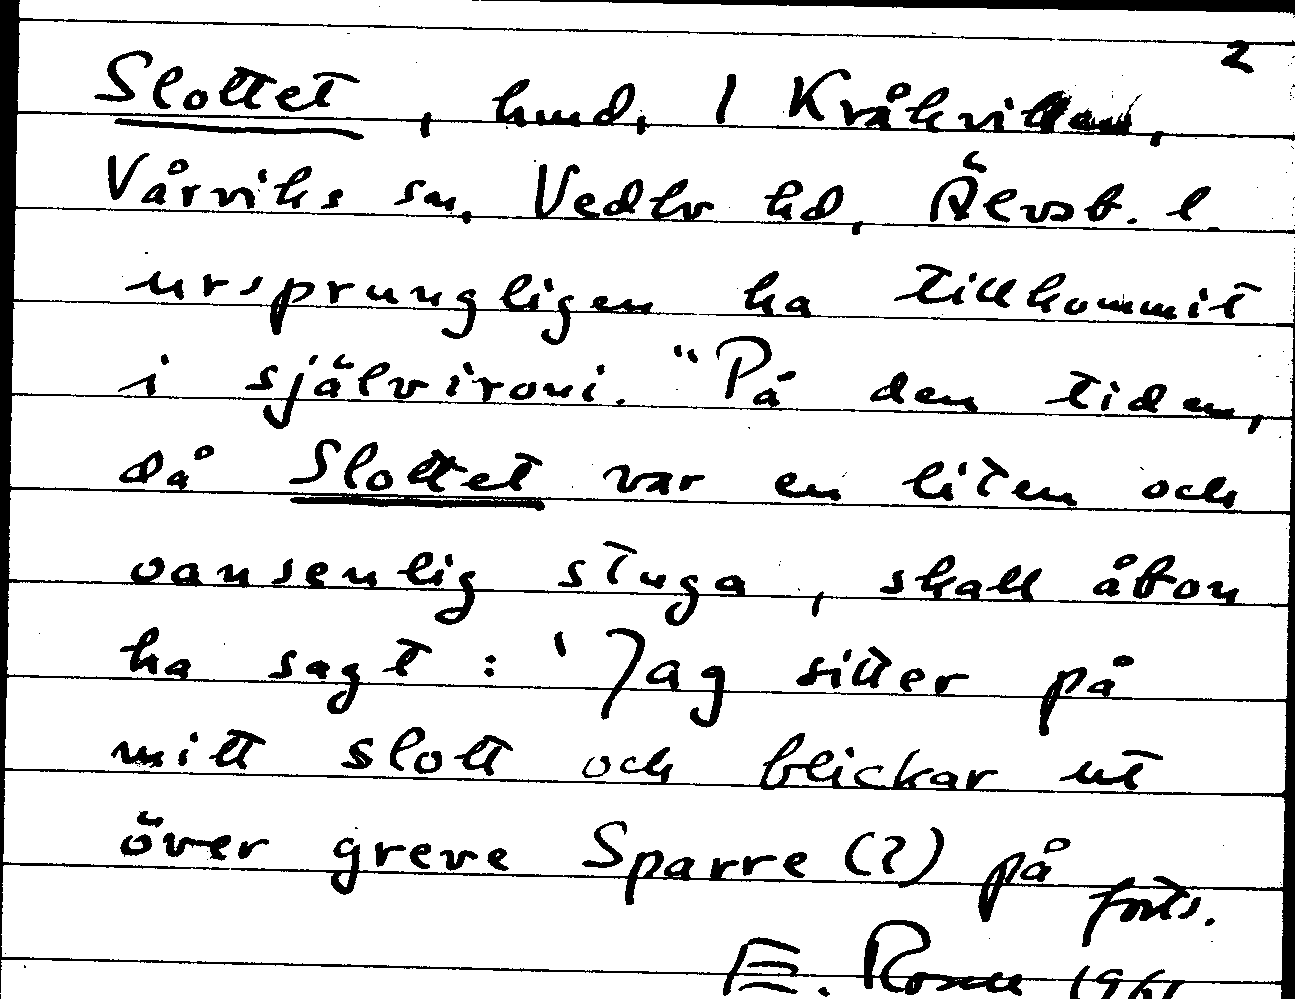 2
Slottet, hmd, 1 Kråkviken,
Vårviks sn, Vedbo hd, Älvsb. l.
ursprungligen ha tillkommit
i självironi. "På den tiden,
då Slottet var en liten och
oansenlig stuga, skall åbon
ha sagt: 'Jag sitter på
mitt slott och blickar ut
över greve Sparre (?) på
forts.
E. 1961